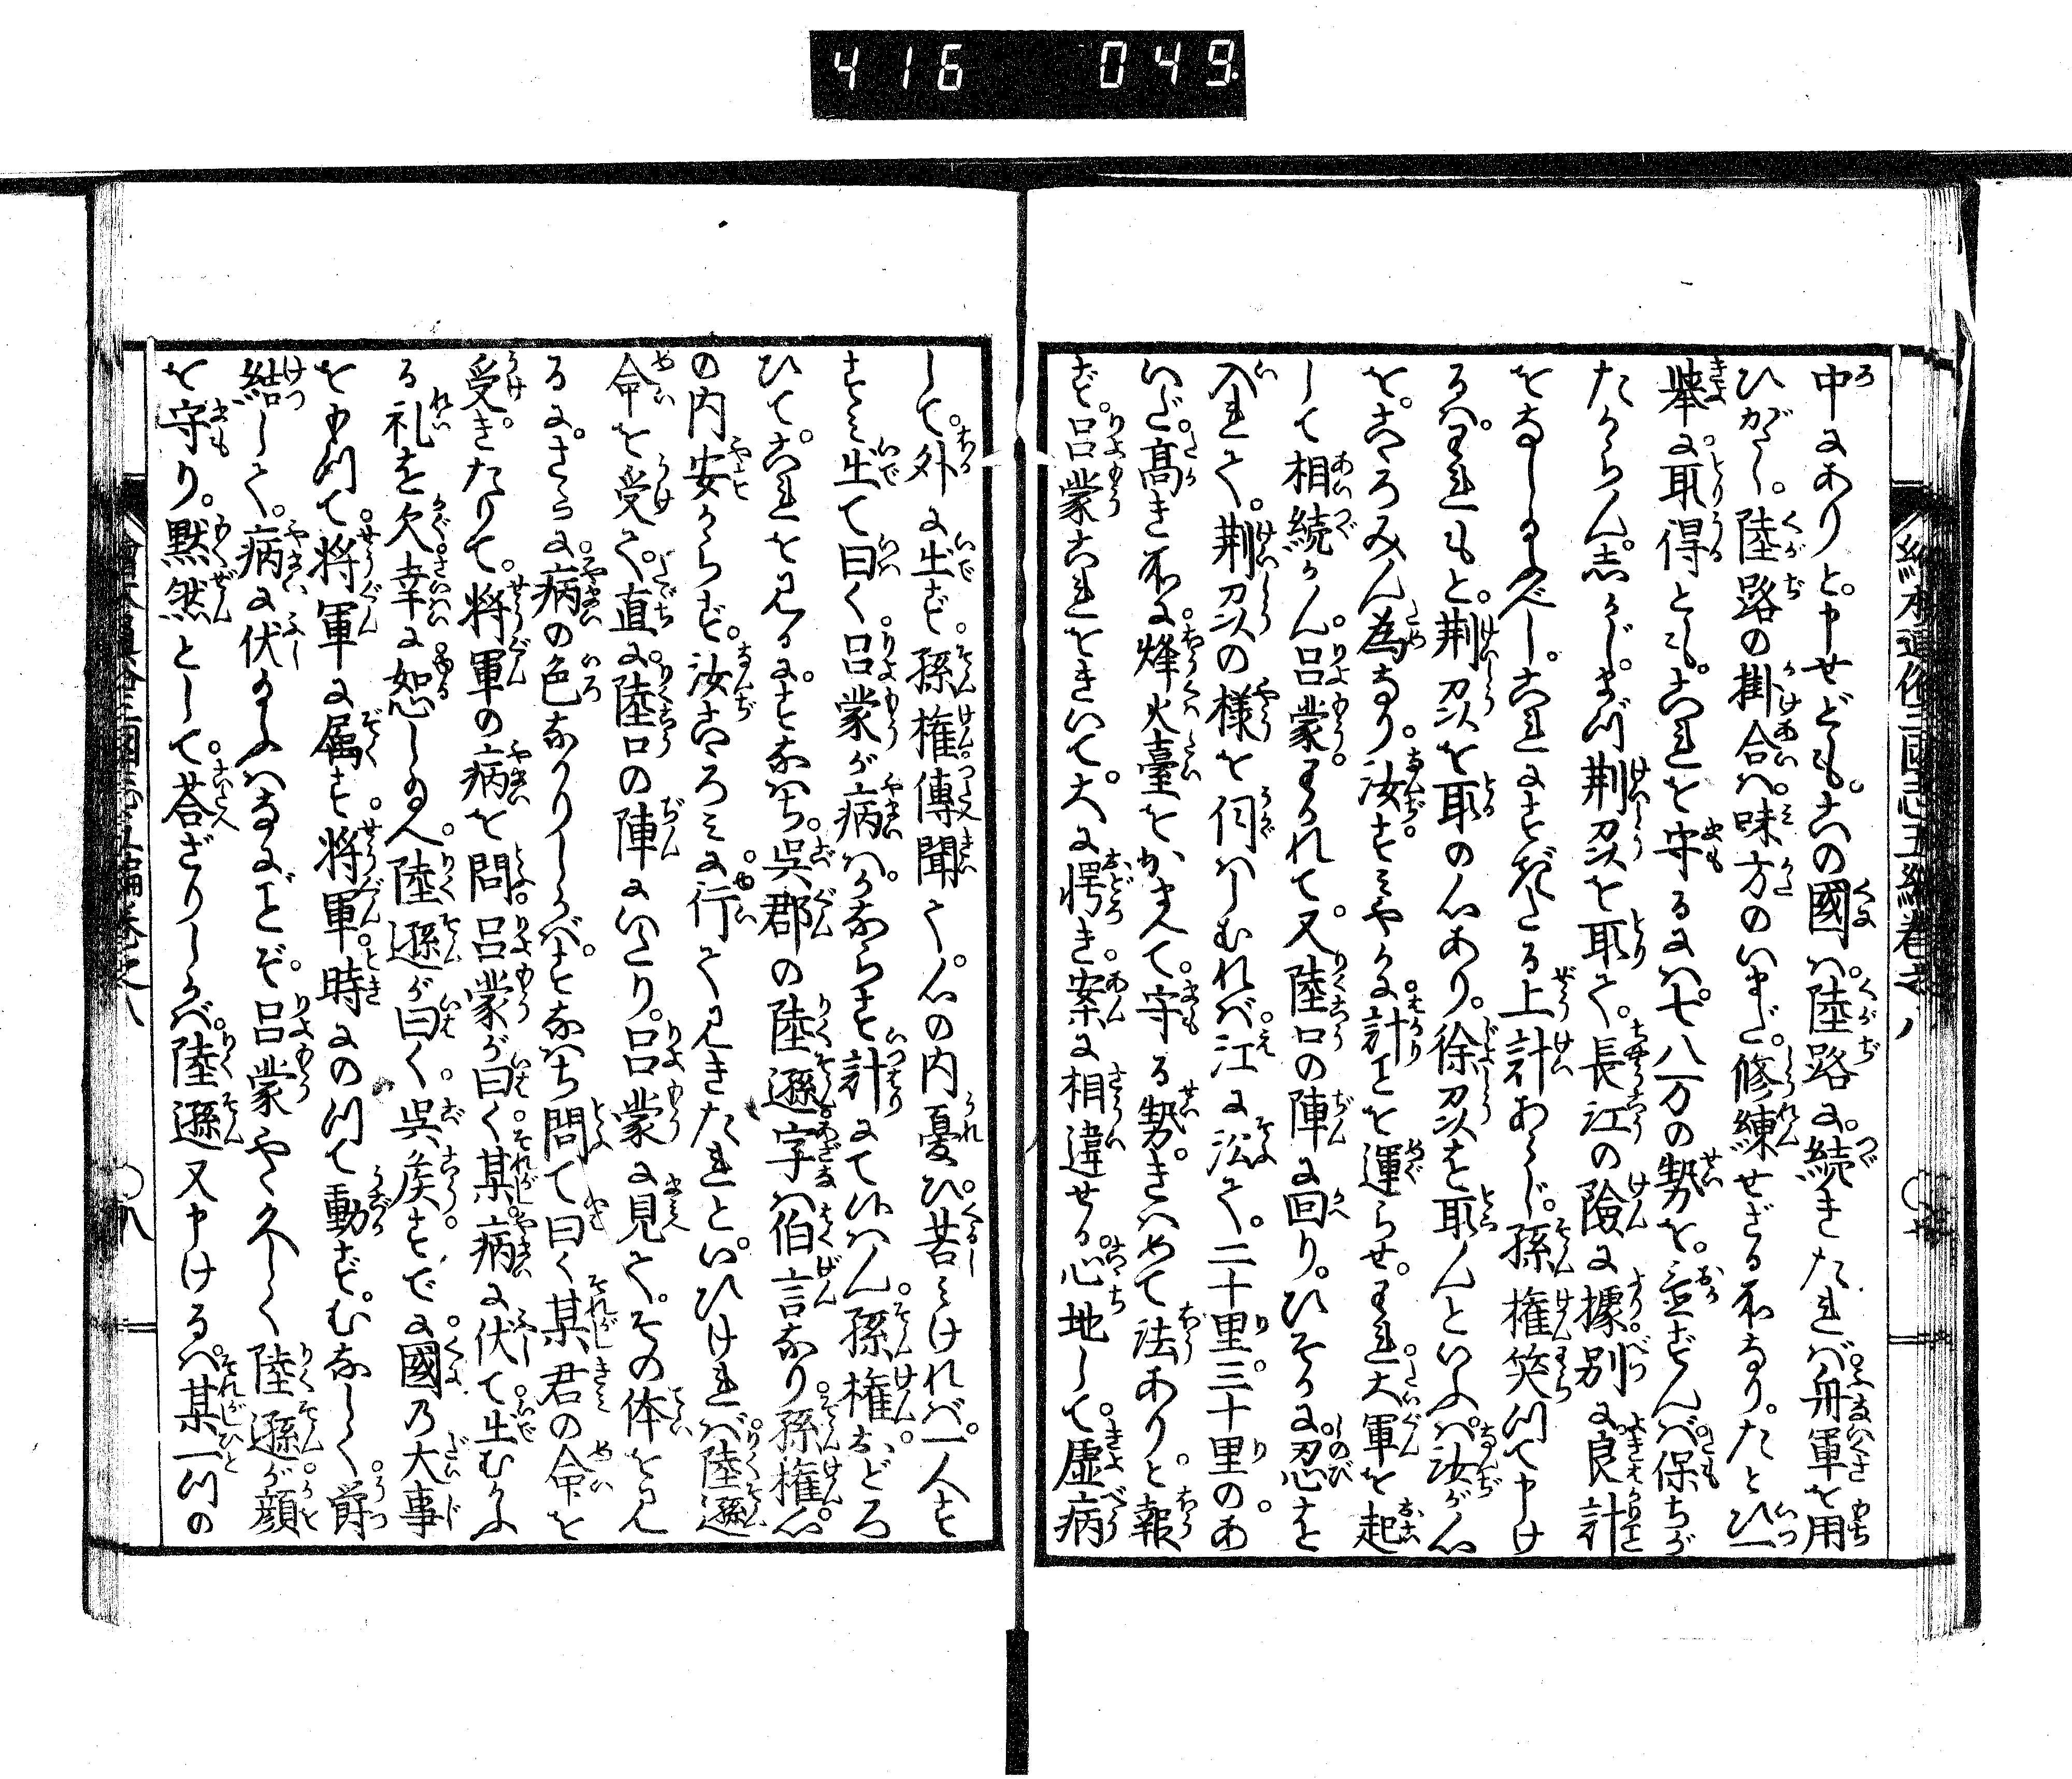 416 049
中にありと。申せども。この國は。陸路に。続きたれば。舟軍を用
ひがたし。陸路の掛合は。味方のいまだ。修練せざる所なり。たとひ一
挙に。取得とも。これを守るには。七八万の勢を。並ずんば。保ちが
たからん。志かじ。まづ荆州を取て。長江の險に據。別に良計
をなしるべし。これにすぎたる上計あらじ。孫権笑つて申け
るは。われもと。荆州を取の心あり。徐州を取んといふは。汝が心
を。こゝろみん為なり。汝。すみやかに。計ことを運らせ。われ。大軍を起
して相続がん。呂蒙。わかれて。又陸口の陣に回り。ひそかに。忍を
入れて。荆州の様を伺はしむれば。江に沿て。二十里三十里の。あ
いだ。高き所に。烽火臺を。かまえて。守る勢。きはめて法ありと。報
ず。呂蒙これをきいて。大に愕き。案に相違せる。心地して。虚病
して。外に出ず。孫権傳聞て。心の内憂ひ。苦みければ。一人す
すみ出て曰く。呂蒙が病は。かならす計にて候はん。孫権。おどろ
ひて。これを見るに。すなはち。呉郡の陸遜字は伯言なり孫権。心
の内安からず。汝こゝろみに。行て見きたれと。いひければ。陸遜
命を受て。直に。陸口の陣にいたり。呂蒙に見て。その体を見
るに。さらに。病の色なかりしかば。すなはち問て曰く某君の命を
受。きたりて。将軍の病を問。呂蒙が曰く。某。病に伏て。出むかふ
る礼を欠。幸に。恕し給へ。陸遜が曰く。呉侯。すでに國の大事
をもつて。将軍に属す。将軍。時にのつて動ず。むなしく。爵
結して。病に伏給ふはなにごとぞ。呂蒙やゝ久しく陸遜が。顔
を守り。黙然として。荅ざりしかば。陸遜又申けるは。某一つの